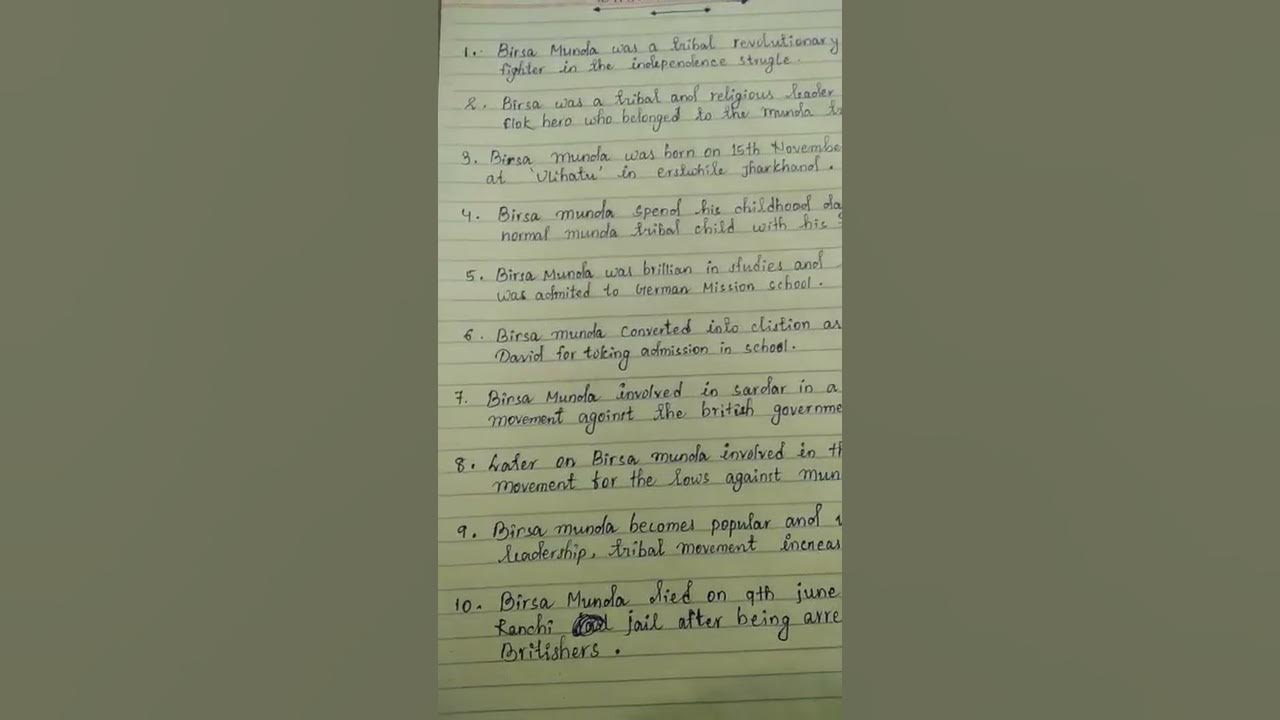 1. Birsa Munda was a tribal revolutionary
fighter in the independence strugle.
2. Birsa was a tribal and religious leader
flok hero who belonged to the munda
3. Birsa munda was born on 15th Novembe
at 'Ulihatu' in erstwhile Jharkhand.
4. Birsa munda spend his childhood da
normal munda tribal child with his
5. Birsa Munda was brillian in studies and
was admited to German Mission school.
6. Birsa munda converted into clistion as
David for toking admission in school.
7. Birsa Munda involved in sardar in a
movement against the british governme
8. Later on Birsa munda involved in th
movement for the lows against mun
9. Birsa munda becomes popular and
leadership, tribal movement increas
10. Birsa Munda died on 9th june
Ranchi jail after being arre
Britishers.